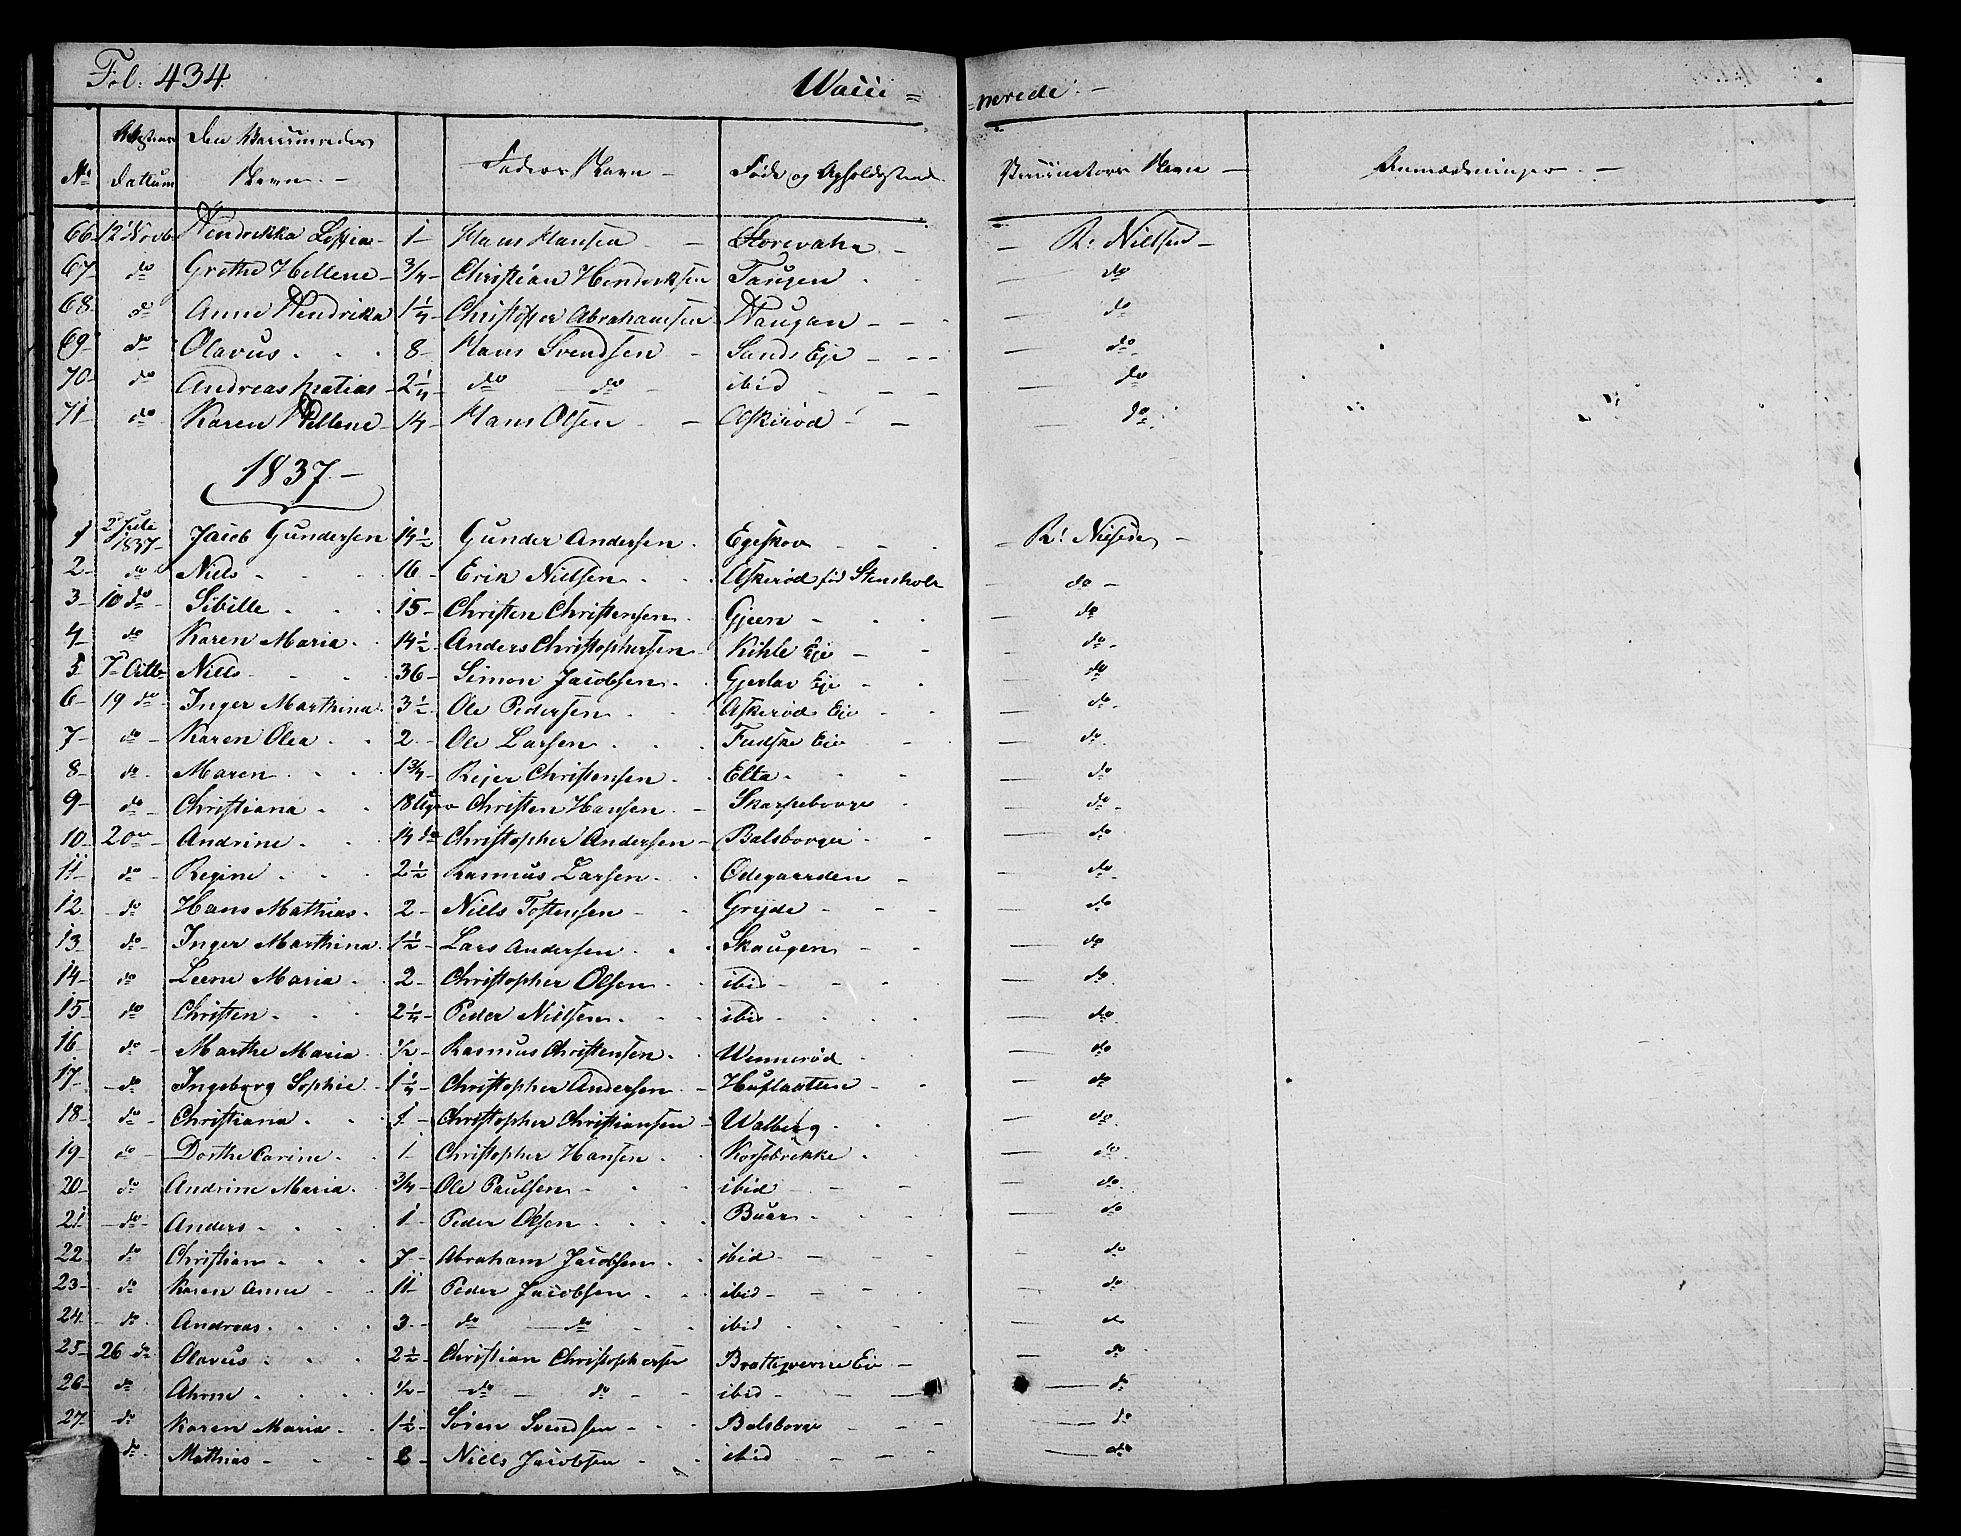 Fol: 434.
Vacci = nerede. -
No
Datum
Den Vaccineredes Navn. -
Faders Navn -
Føde og Opholdssted
Vaccinators Navn -
Anmærkninger. -
66- 12 Novb Hendrikka 1- Hans Hansen - R: Nielsen -
67- do Grethe Hellene - 3/4- Christian Hendriksen Taugen - do
68- do Anne Hendrika 1 1/4- Christopher Abrahamsen Haugan - do
69- do Olavus 8- Hans Svendsen - Sands Eje - do
70- do Andreas Matias - 2 1/4- do do - ibid - do
71- do Karen Hellene - 14- Hans Olsen - Askerød - do
1837-
1 2 Juli 1837- Jacob Gundersen 14 1/2 Gunder Andersen Egeskov - R:
2- do Niels 16- Erik Nielsen Askerød fød Stensholt - do -
3- 10 do Sibille 15- Christen Christensen Gjeen - do
4- do Karen Maria 14 1/2 Anders Christophersen Kihle Eje - do
5 7 Niels 36- Simon Jacobsen Eje - do
6- 19 do Inger Marthina 3 1/2 Ole Pedersen Askerød Eje - do
7- do- Karen Olea 2- Ole Larsen Fudske Eje - do
8- do- Maren 1 3/4- Rejer Christensen Elta - do
9- do- Christiana 18 Uger Christen Hansen Skorpeborge - do
10- 20 Andrine 14 do Christopher Andersen - Balsborge - do
11- do- Regine 2 1/2 Rasmus Larsen Ødegaarden - do
12- do Hans Mathias 2- Niels Tostensen - do
13- do- Inger Marthina 1 1/2- Lars Andersen Skaugen - do
14- do Leene Maria 2- Christopher Olsen ibid - do
15- do Christen 2 1/4- Peder Nielsen ibid do
16 do- Marthe Maria 1/2- Rasmus Christensen Wennerød - do
17- do Ingeborg Sophie 1 1/4- Christopher Andersen - - do
18- do- Christiana 1- Christopher Christiansen - Walberg - do
19- do- Dorthe Carine 1- Christopher Hansen Korsebrekke - do
20- do Andrine Maria 3/4- Ole Paulsen - ibid - do
21- do- Anders 1- Peder Olsen Buer - do
22- do Christian 7- Abraham Jacobsen ibid - do
23- do Karen Anne 11- Peder Jacobsen ibid - do
24- do Andreas 3- do do ibid do
25- 26 do Olavus 2 1/2- Christian Christophersen Eje - do
26- do 1/2- do - do ibid - do
27- do Karen Maria 1 1/2- Søren Svendsen Balsborge - do
do Mathias - 8- Niels Jacobsen ibid - do